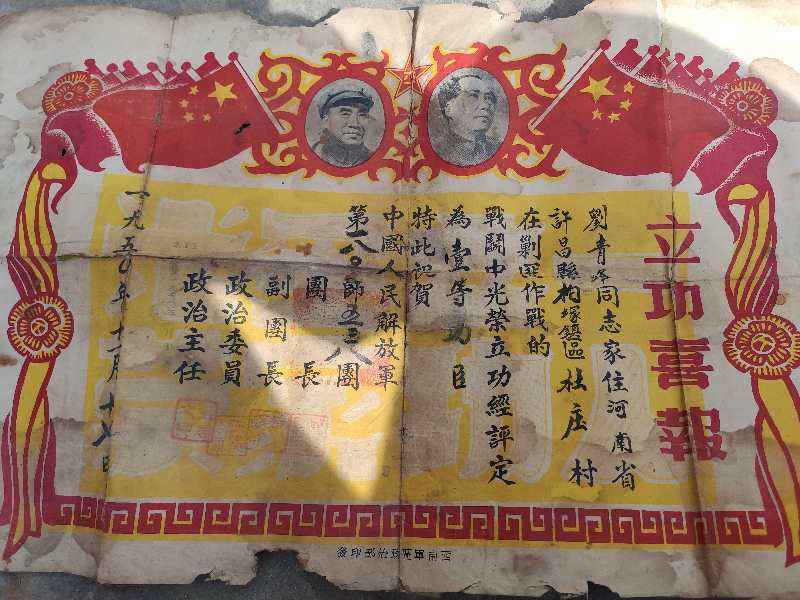 立功喜報
劉青 同志家住河南省
許昌縣 區杜庄村
在剿匪作戰的
戰鬪中光榮立功經評定
為壹等功臣
特此祝賀
中國人民解放軍
第一八〇師五三八團
團長
副團長
政治委員
政治主任
一九五〇年十一月十七日
西南軍區政治部印發